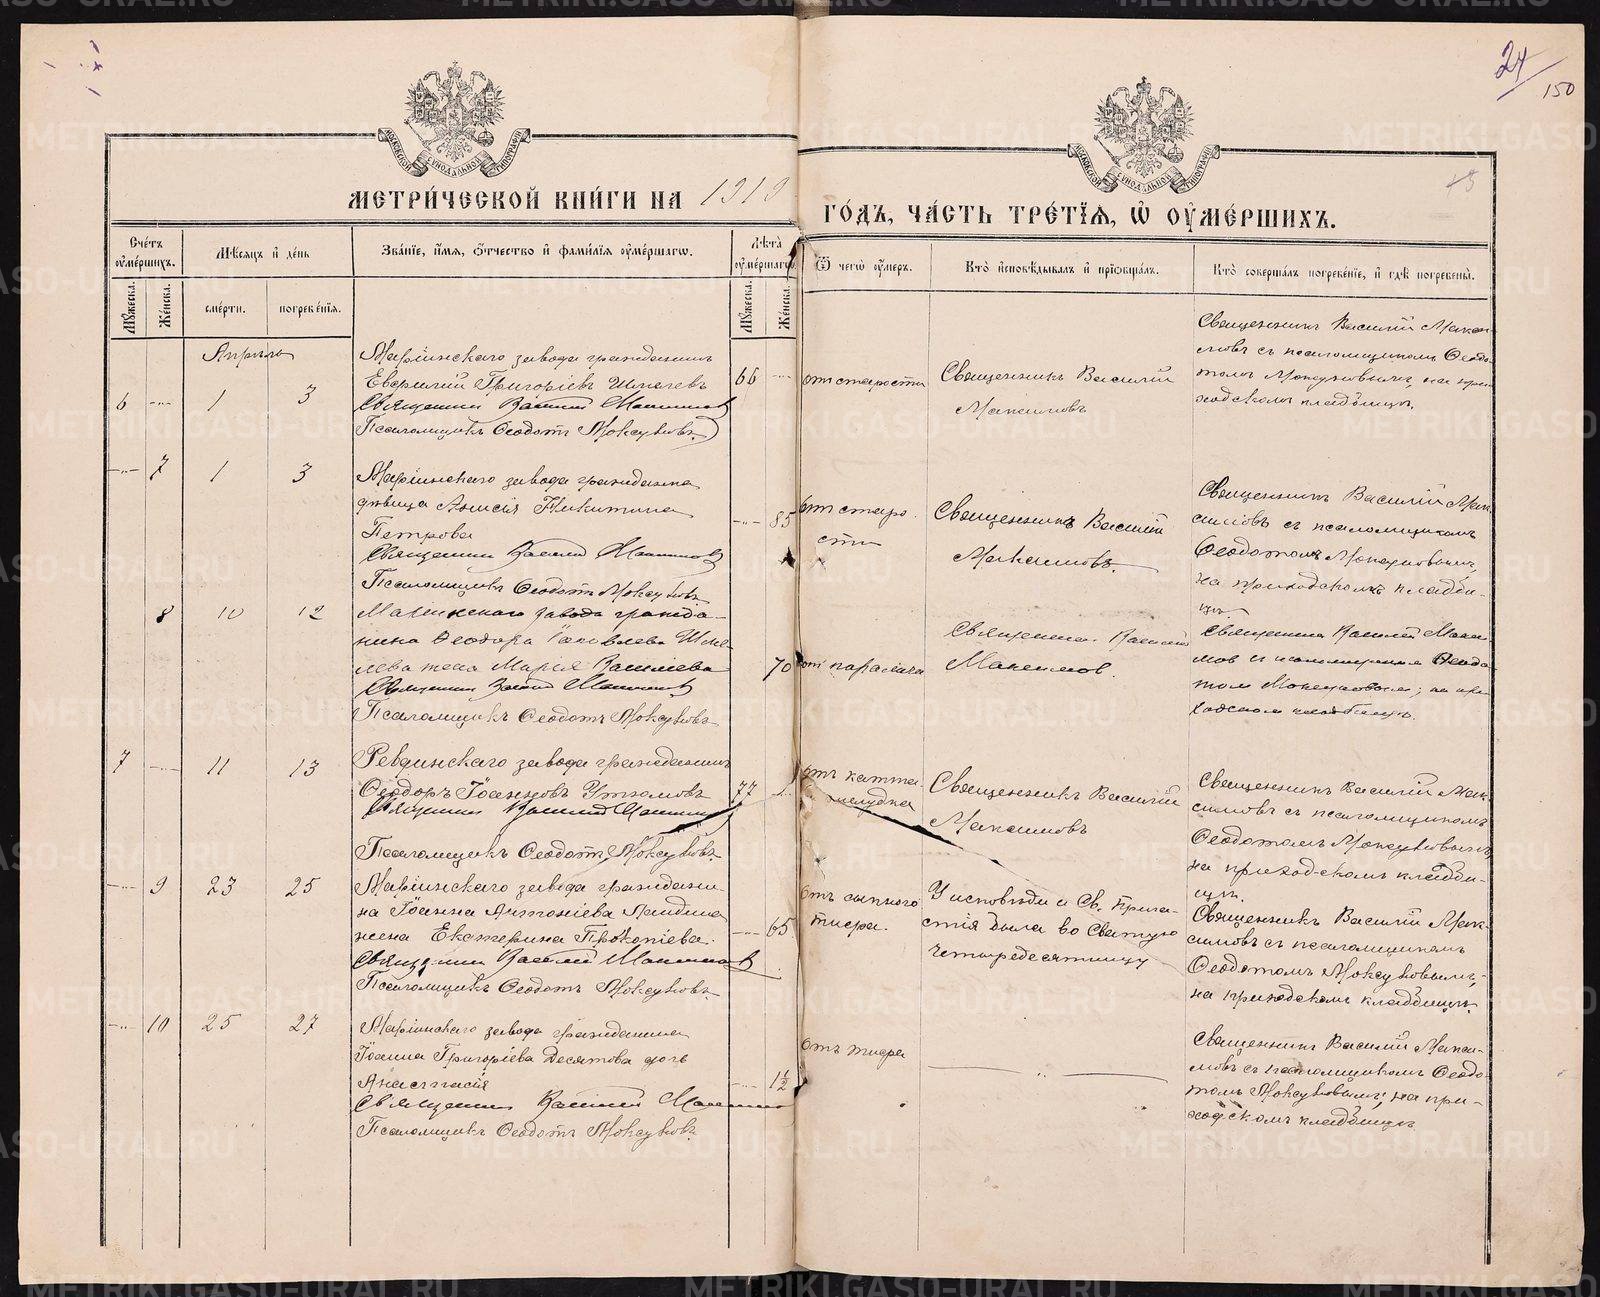 24
150
МЕТРИ́ЧЕСКОЙ КНИ́ГИ НА 1919
ГО́ДЪ, ЧА́СТЬ ТРЕ́ТІѦ, Ѡ ОУ҆МЕ́РШИХЪ.
Сче́тъ
оу҆ме́ршихъ.
Мѣ́сѧцъ и҆ де́нь
Зва́нїе, и҆́мѧ, ѻ҆́тчество и҆ фами́лїѧ оу҆ме́ршагѡ.
Лѣ́та
оу҆ме́ршагѡ.
Ѿ чегѡ̀ оу҆́меръ.
Кто̀ и҆сповѣ́дывалъ и҆ прїѡбща́лъ.
Кто̀ соверша́лъ погребе́нїе, и҆ гдѣ̀ погребены̀.
Мꙋ́жеска.
Же́нска.
сме́рти.
погребе́нїѧ.
Мꙋ́жеска.
Же́нска.
Апрѣль
6 -"- 1 3
Маріинскаго завода гражданинъ
Григоріевъ
Священник Василий Максимов
Псаломщикъ Ѳеодотъ
66 -"-
отъ старости
Священникъ Василій
Максимовъ
Священникъ Василій Макси-
мовъ съ псаломщикомъ Ѳеодо-
томъ на при-
ходскомъ кладбищѣ.
-"- 7 1 3
Маріинскаго завода гражданка
дѣвица Анисія Никитина
Петрова
Священник Василий Максимов
Псаломщикъ Ѳеодотъ
-"- 85
отъ старо-
сти
Священникъ Василій
Максимовъ.
Священникъ Василій Мак-
симовъ съ псаломщикомъ
Ѳеодотомъ
на приходскомъ кладби-
щѣ
8 10 12
Мариинскаго завода гражда-
нина Ѳеодора Іаковлева Шме-
лева жена Марія Василиева
Священник Василий Максимов
Псаломщикъ Ѳеодотъ
70
от паралича
Священник Василий
Максимов.
Священник Василий Макси-
мов с псаломщиком Ѳеодо-
том на при-
ходском кладбищѣ.
7 -"- 11 13
Ревдинскаго завода гражданинъ
Ѳеодоръ Іоанновъ
Священник Василий Максимов
Псаломщикъ Ѳеодотъ
77 -"-
отъ катта-
желудка
Священникъ Василій
Максимовъ
Священникъ Василій Мак-
симовъ съ псаломщикомъ
Ѳеодотомъ
на приходскомъ кладби-
щѣ.
-"- 9 23 25
Маріинскаго завода граждани-
на Іоанна Антоніева
жена Екатерина Прокопіева.
Священник Василий Максимов
Псаломщикъ Ѳеодотъ
-"- 65
Отъ сыпного
тифа.
У исповѣди и Св. Прича-
стія была во Святую
Четыредесятницу
Священникъ Василій Мак-
симовъ съ псаломщикомъ
Ѳеодотомъ
на приходскомъ кладбищѣ.
-"- 10 25 27
Маріинскаго завода гражданина
Іоанна Григоріева Десятова дочь
Анастасія
Священник Василий Максимов
Псаломщикъ Ѳеодотъ
-"- 1½
Отъ тифа
-"-
Священникъ Василій Макси-
мовъ съ псаломщикомъ Ѳеодо-
томъ на при-
ходскомъ кладбищѣ
METRIKI.GASO-URAL.RU